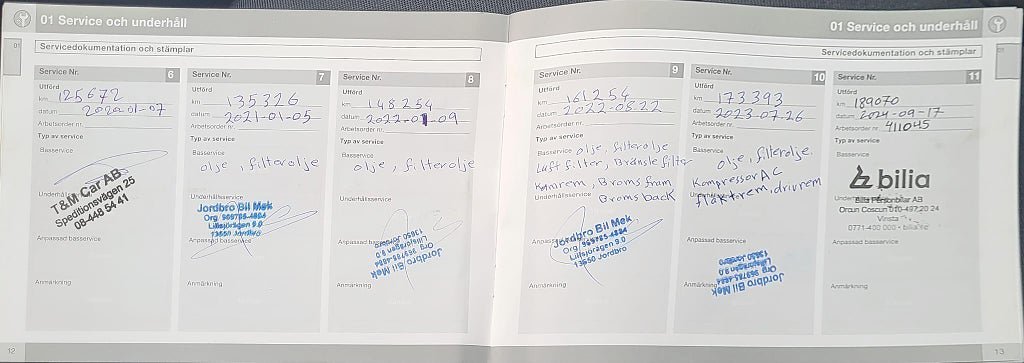 01 Service och underhåll
Servicedokumentation och stämplar
01
Service Nr. 6
Utförd
km 125672
datum 2020-01-07
Arbetsorder nr.
Typ av service
Basservice
T&M Car AB
Speditionsvägen 25
08-448 54 41
Anpassad basservice
Anmärkning
Service Nr. 7
Utförd
km 135326
datum 2021-01-05
Arbetsorder nr.
Typ av service
Basservice
olje, filterolje
Underhållsservice
Jordbro Bil Mek
Org 969785-4884
Lillsjövägen 9.0
13650 Jordbro
Anpassad basservice
Anmärkning
Service Nr. 8
Utförd
km 148254
datum 2022-01-09
Arbetsorder nr.
Typ av service
Basservice
olje, filterolje
Underhållsservice
Anpassad basservice
Jordbro Bil Mek
Org 969785-4884
Lillsjövägen 9.0
13650 Jordbro
Anmärkning
12
01 Service och underhåll
Servicedokumentation och stämplar
01
Service Nr. 9
Utförd
km 161254
datum 2022-08-22
Arbetsorder nr.
Typ av service
Basservice olje, filterolje
Luft filter, Bränsle filter
Kamrem, Broms fram
Underhållsservice Broms back
Jordbro Bil Mek
Org 969785-4884
Lillsjövägen 9.0
13650 Jordbro
Anpassad basservice
Anmärkning
Service Nr. 10
Utförd
km 173393
datum 2023-07-26
Arbetsorder nr.
Typ av service
Basservice
olje, filterolje.
Kompressor AC
Underhållsservice
fläktrem, drivrem
Anpassad basservice
Jordbro Bil Mek
Org 969785-4884
Lillsjövägen 9.0
13650 Jordbro
Anmärkning
Service Nr. 11
Utförd
km 189070
datum 2024-09-17
Arbetsorder nr. 411045
Typ av service
Basservice
bilia
Bilia Personbilar AB
Orcun Coscun 010-497 20 24
Vinsta
0771-400 000 • bilia.se
Anpassad basservice
Anmärkning
13